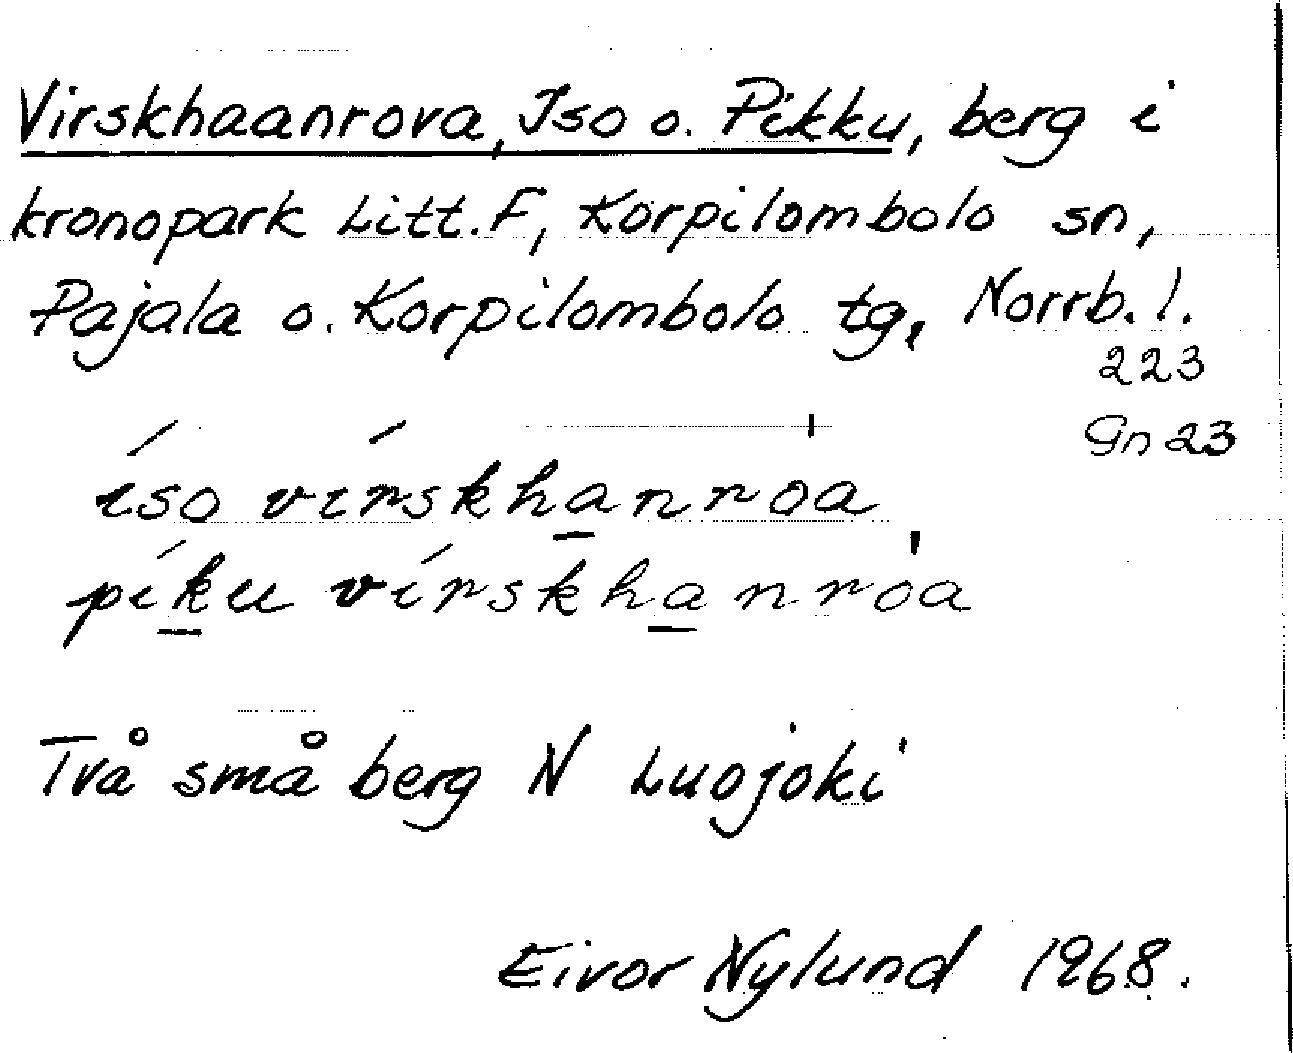 Virskhaanrova, Iso o. Pikku, berg i
kronopark Litt. F, Korpilombolo sn,
Pajala o. Korpilombolo tg, Norrb. l.
223
Gn 23
íso vírskha̲nròa
píḵu vírskha̲nròa
Två små berg N Luojoki
Eivor Nylund 1968.